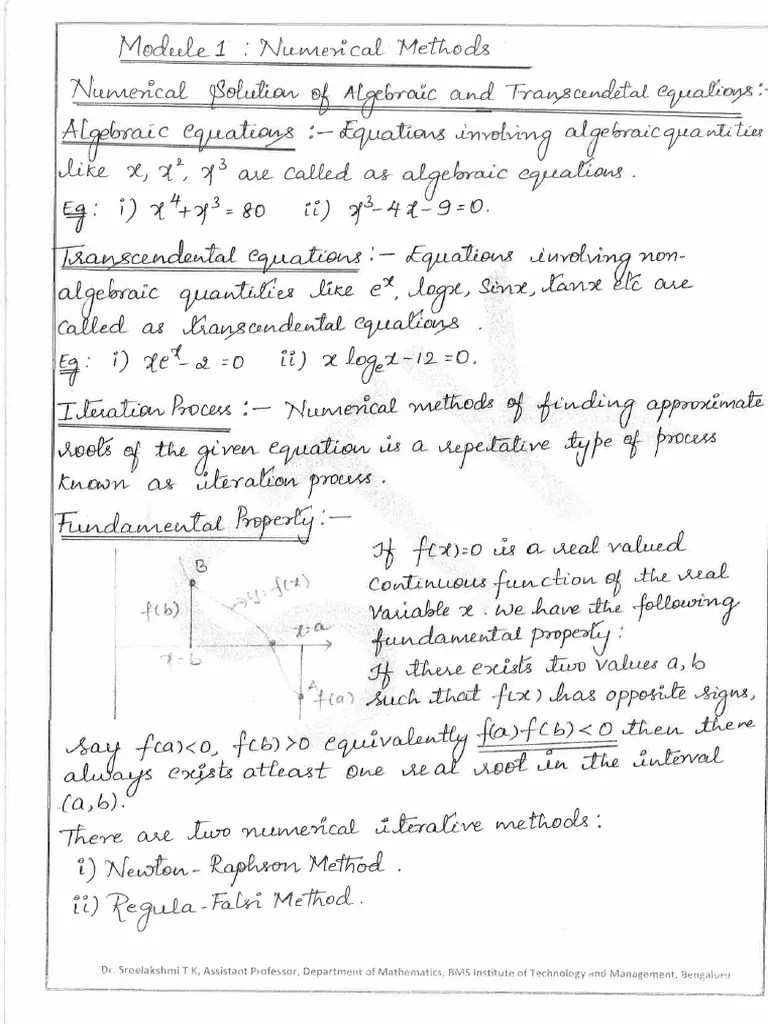 Module 1 : Numerical Methods
Numerical Solution of Algebraic and Transcendetal equations:-
Algebraic equations :- Equations involving algebraic quantities
like x, x², x³ are called as algebraic equations.
Eg: i) x⁴+x³=80 ii) x³-4x-9=0.
Transcendental equations:- Equations involving non-
algebraic quantities like eˣ, logx, Sinx, tanx etc are
called as transcendental equations.
Eg: i) xeˣ-2=0 ii) x logₑx-12=0.
Iteration Process:- Numerical methods of finding approximate
roots of the given equation is a repetative type of process
known as iteration process.
Fundamental Property:-
B
f(b)
y=f(x)
x=a
x=b
A
f(a)
If f(x)=0 is a real valued
continuous function of the real
variable x. We have the following
fundamental property:
If there exists two values a,b
such that f(x) has opposite signs,
say f(a)<0, f(b)>0 equivalently f(a)·f(b)<0 then there
always exists atleast one real root in the interval
(a,b).
There are two numerical iterative methods:
i) Newton-Raphson Method.
ii) Regula-Falsi Method.
Dr. Sreelakshmi T K, Assistant Professor, Department of Mathematics, BMS Institute of Technology and Management, Bengaluru